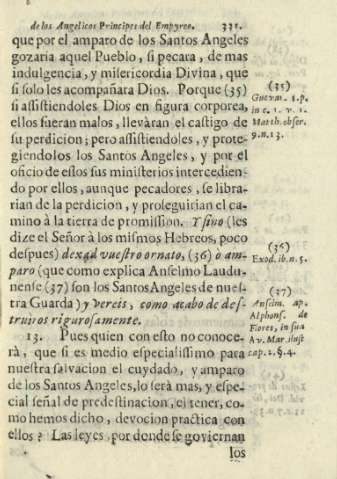 de los Angelicos Principes del Empyreo. 331.
que por el amparo de los Santos Angeles
gozaria aquel Pueblo, si pecara, de mas
indulgencia, y misericordia Divina, que
si solo les acompañara Dios. Porque (35)
si assistiendoles Dios en figura corporea,
ellos fueran malos, llevàran el castigo de
su perdicion; pero assistiendoles, y prote-
giendolos los Santos Angeles, y por el
oficio de estos sus ministerios intercedien-
do por ellos, aunque pecadores, se libra-
rian de la perdicion, y proseguirian el ca-
mino à la tierra de promission. Y sino (les
dize el Señor à los mismos Hebreos, poco
despues) dexad vuestro ornato, (36) o am-
paro (que como explica Anselmo Laudu-
nense (37) son los Santos Angeles de nues-
tra Guarda) y vereis, como acabo de des-
truiros rigurosamente.
13. Pues quien con esto no conoce-
rà, que si es medio especialissimo para
nuestra salvacion el cuydado, y amparo
de los Santos Angeles, lo serà mas, y espe-
cial señal de predestinacion, el tener, co-
mo hemos dicho, devocion practica con
ellos? Las leyes, por donde se goviernan
los
(35)
1. p.
in c. 1. v. 1.
Matth. obser.
9. n. 13.
(36)
Exod. ib. n. 5.
(37)
Anselm. ap.
Alphons. de
Flores, in sua
Av. Mar. ilust
cap. 2. §. 4.